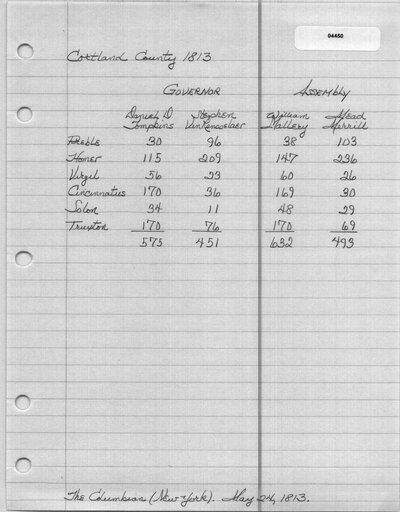 04450
Cortland County 1813
Governor Assembly
Daniel D Stephen William Mead
Tompkins Van Rensselaer Mallery Merrill
Preble 30 96 38 103
Homer 115 209 147 236
Virgil 56 23 60 26
Cincinnatus 170 36 169 30
Solon 34 11 48 29
Truxton 170 76 170 69
575 451 632 493
The Columbian (New York). May 24, 1813.